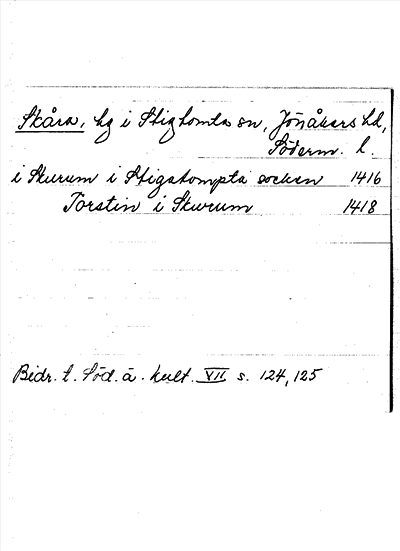 Skåra, hg i Stigtomta sn, Jönåkers hd,
Söderm. l.
i Skurum i Stigstompta socken 1416
Torstin i Skurum 1418
Bidr. t. Söd. ä. kult. VII s. 124, 125